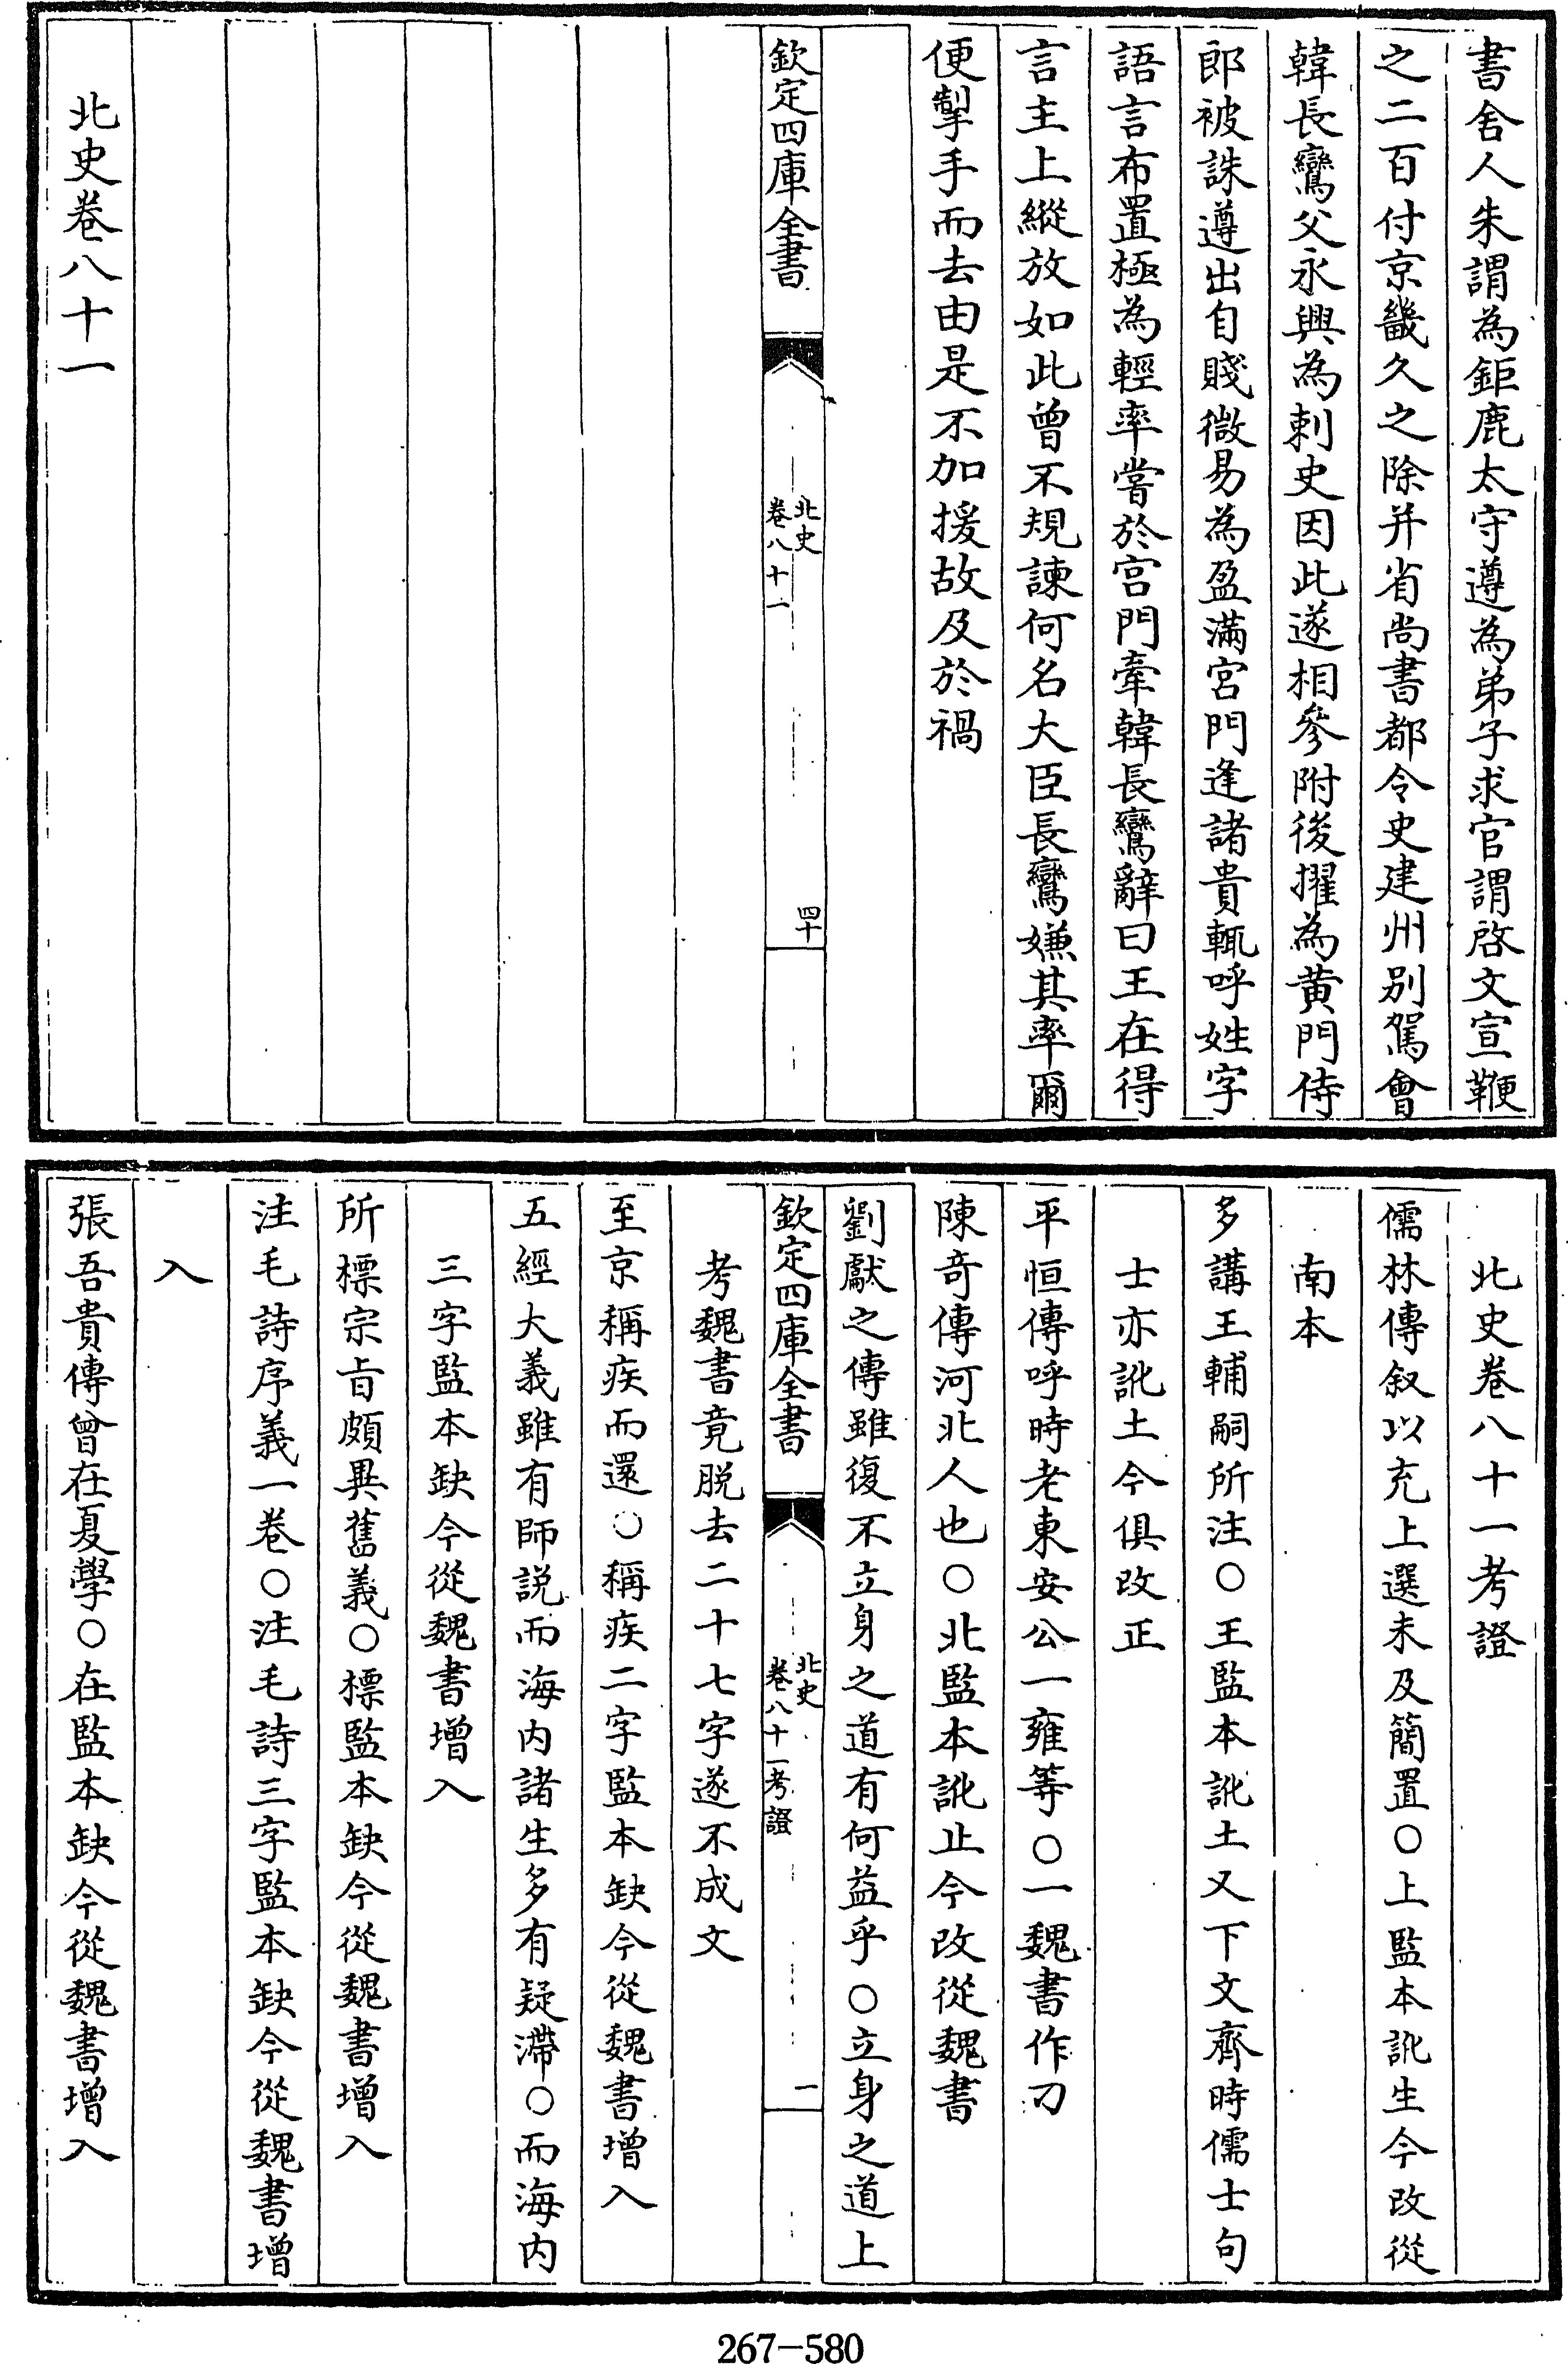 書舍人朱謂為鉅鹿太守遵為弟子求官謂啓文宣鞭
之二百付京畿久之除并省尚書都令史建州別駕會
韓長鸞父永興為刺史因此遂相參附後擢為黄門侍
郎被誅遵出自賤微易為盈滿宮門逢諸貴輒呼姓字
語言布置極為輕率嘗於宫門牽韓長鸞辭曰王在得
言主上縱放如此曾不規諫何名大臣長鸞嫌其率爾
便掣手而去由是不加援故及於禍
欽定四庫全書
北史
卷八十一
四十
北史卷八十一
北史卷八十一考證
儒林傳叙以充上選未及簡置○上監本訛生今改從
南本
多講王輔嗣所注○王監本訛土又下文齊時儒士句
士亦訛土今俱改正
平恒傳呼時老東安公一雍等○一魏書作刀
陳奇傳河北人也○北監本訛止今改從魏書
劉獻之傳雖復不立身之道有何益乎○立身之道上
欽定四庫全書
北史
卷八十一考證
一
考魏書竟脱去二十七字遂不成文
至京稱疾而還○稱疾二字監本缺今從魏書增入
五經大義雖有師説而海内諸生多有疑滯○而海内
三字監本缺今從魏書增入
所標宗旨頗異舊義○標監本缺今從魏書增入
注毛詩序義一卷○注毛詩三字監本缺今從魏書增
入
張吾貴傳曾在夏學○在監本缺今從魏書增入
267-580